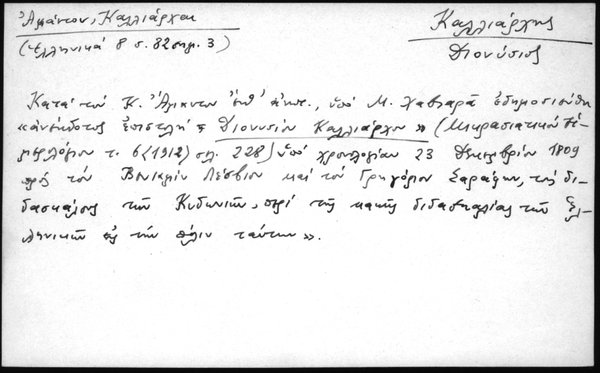 Ἀμάντου, Καλλιάρχαι
(Ἑλληνικά 8 σ. 82 σημ. 3)
Καλλιάρχης
Διονύσιος
Κατά τόν Κ. Ἄμαντον ἐνθ' ἀνωτ., ὑπό Μ. Χαβιαρᾶ ἐδημοσιεύθη
«ἀνέκδοτος ἐπιστολή τ. Διονυσίου Καλλιάρχου» (Μικρασιατικόν Ἡ-
μερολόγιον τ. 6 (1912) σελ. 228) ὑπό χρονολογίαν 23 Δεκεμβρίου 1809
πρός τόν Βενιαμίν Λέσβιον καί τόν Γρηγόριον Σαράφην, τούς δι-
δασκάλους τῶν Κυδωνιῶν, περί τῆς κακῆς διδασκαλίας τῶν Ἑλ-
ληνικῶν εἰς τήν πόλιν ταύτην».